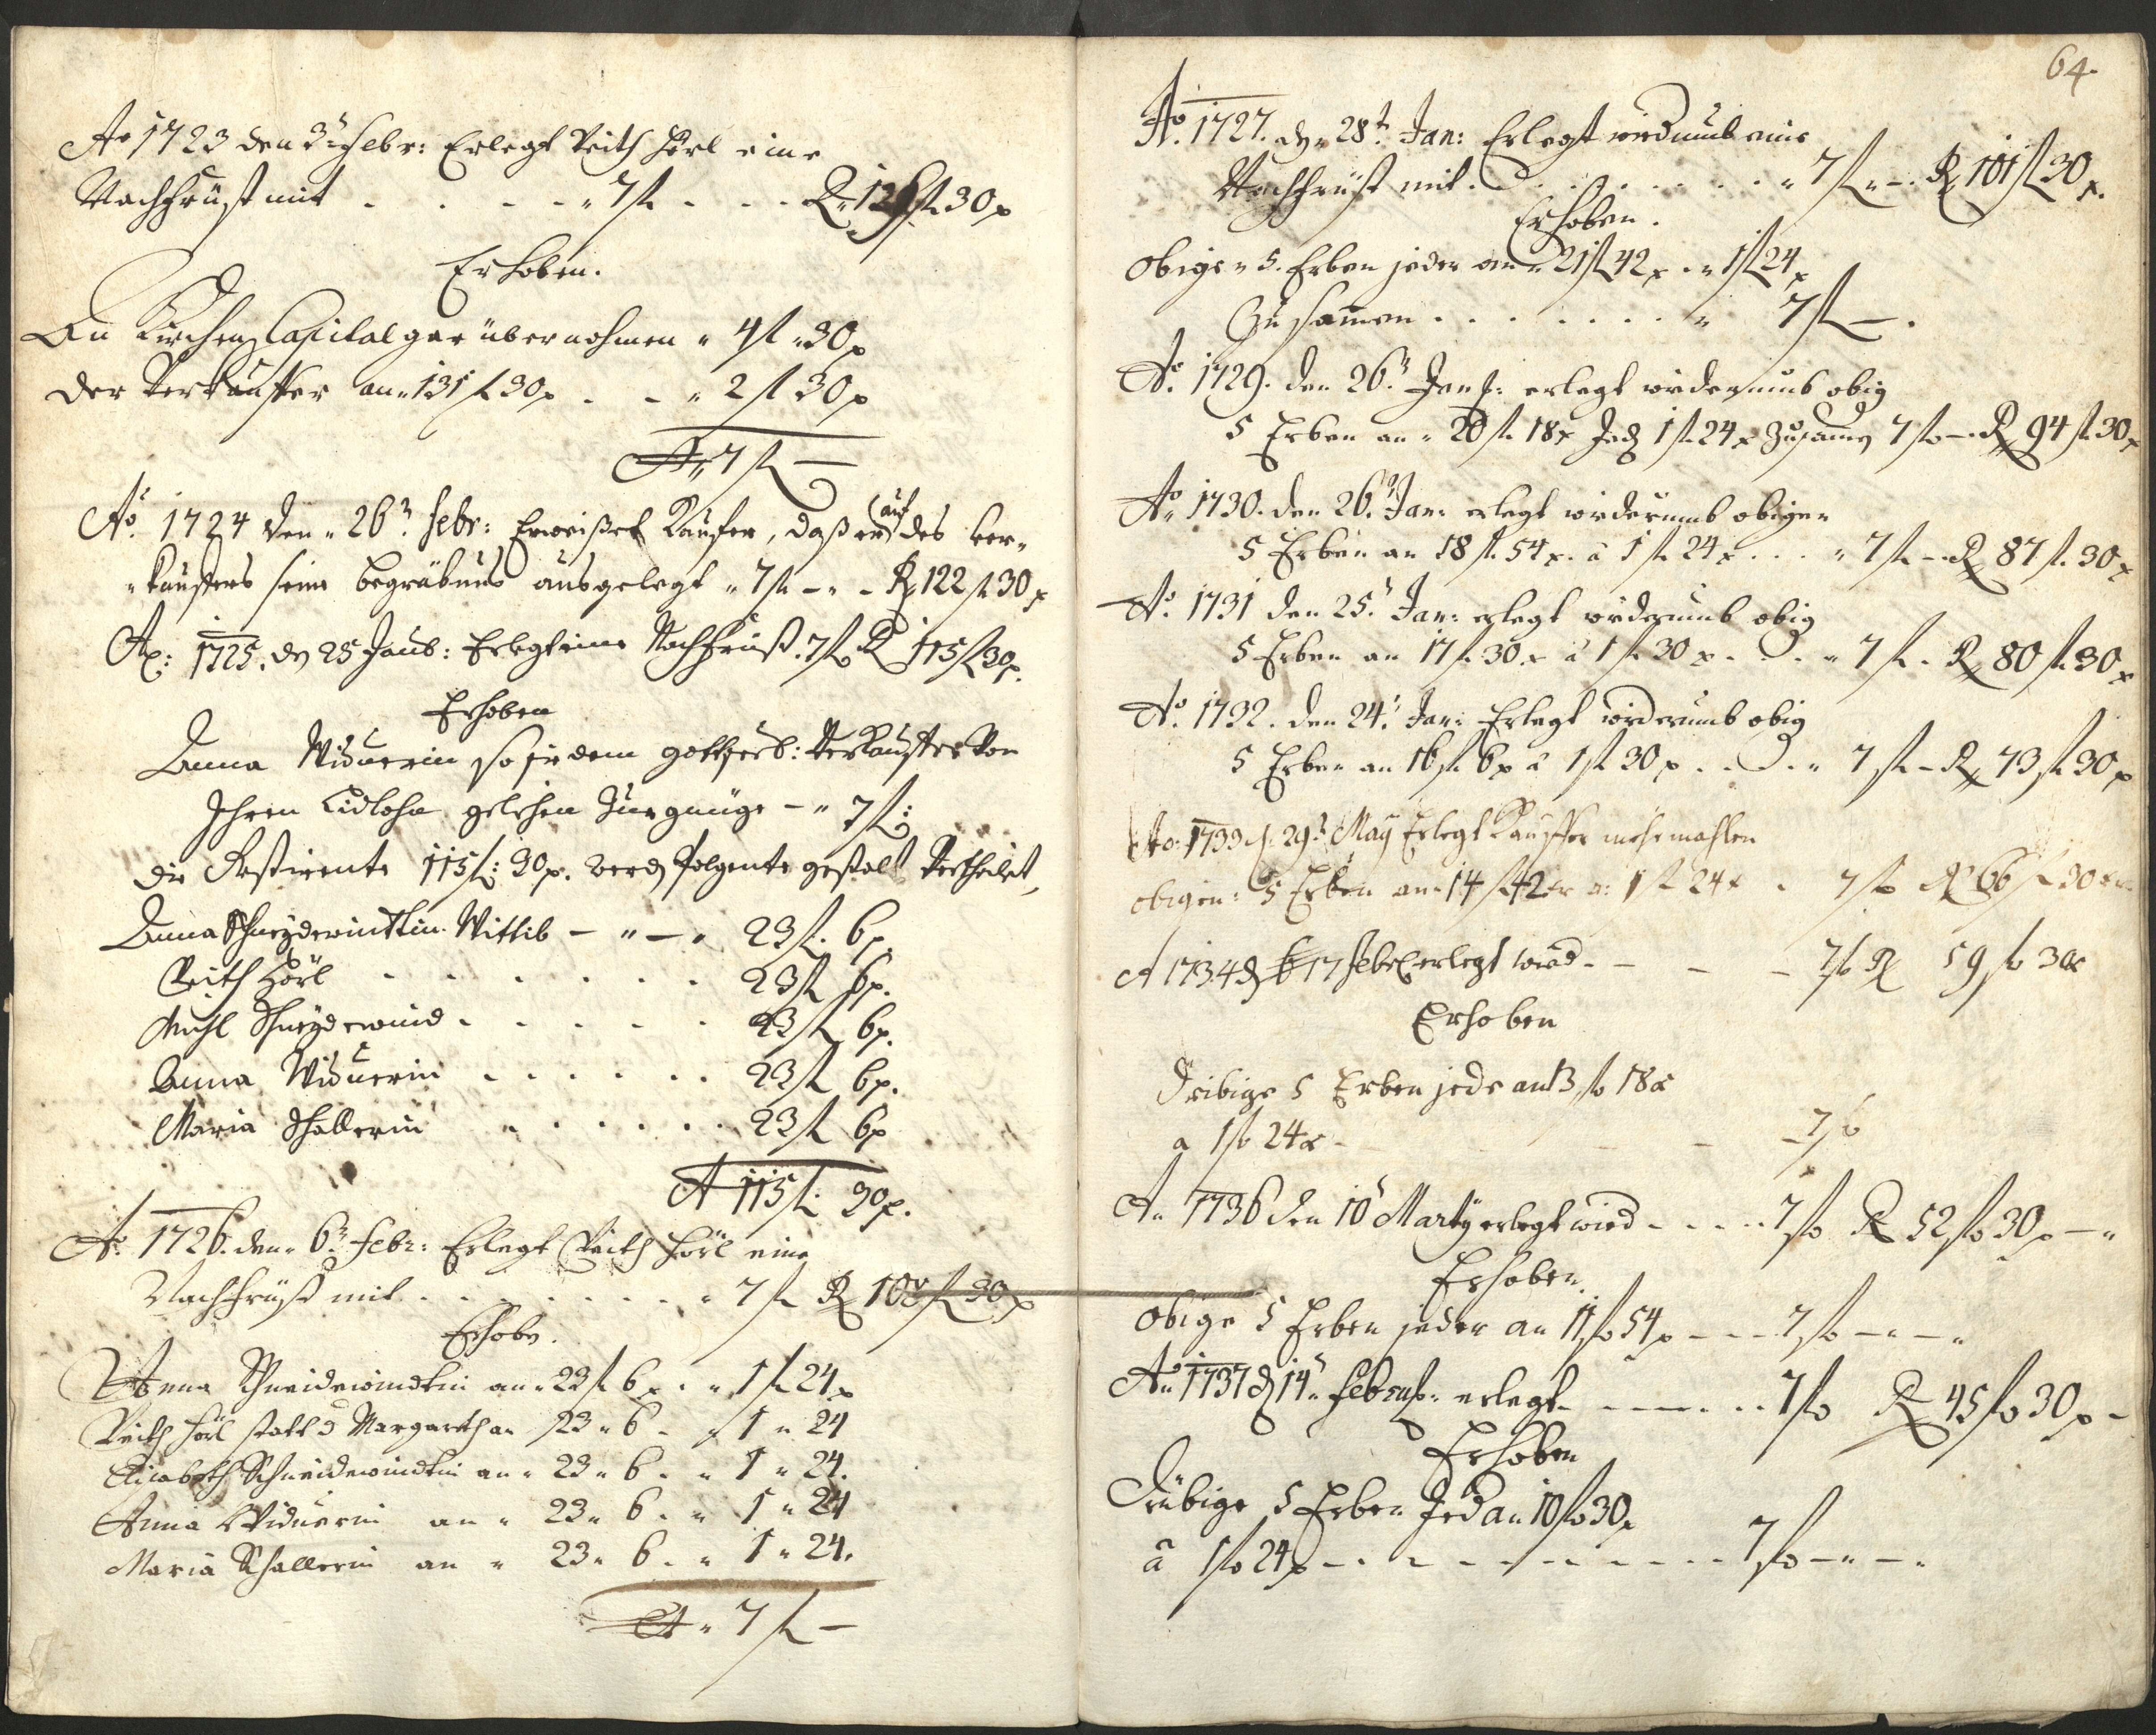 Ao 1723 den 3t. Febr: Erlegt Veith Hörl eine
Nachfrüst mit . . . . " 7 fl . . . R. 129 fl 30 x
Erhoben.
An Kirchen Capital gar übernohmen " 4 fl " 30 x
der Verkauffer an " 131 fl 30 x . . " 2 fl 30 x
" 7 fl —
Ao. 1724 den " 26t. Febr: Erweißet Kaufer, daß er auf des ver-
"kauffers seine begräbnus ausgelegt " 7 fl — " — R 122 fl 30 x
Ao: 1725. dn 25 Janu: Erlegt eine Nachfrüst. 7 fl R 115 fl 30 x.
Erhoben
Anna Widuerin so sie dem gottseel: Verkauffer von
Ihren Lidlohn gelihen Zur gnüge — " 7 fl:
die Restirente 115 fl: 30 x. werdn folgente gestalt Vertheilet,
Anna Schneyderwinttin Wittib — " — " 23 fl. 6 x
Veith Hörl . . . . . . 23 fl 6 x.
Michl Schneyderwind . . . . . 23 fl 6 x.
Anna Widuerin . . . . . . 23 fl 6 x.
Maria Schallerin . . . . . . 23 fl 6 x
115 fl: 30 x.
Ao. 1726. den " 6t. Febr: Erlegt Veith Hörl eine
Nachfrüst mit . . . . . . . . " 7 fl R 108 fl 30 x
Erhobn.
Anna Schneidewindtin an " 23 fl 6 x . " 1 fl 24 x
Veith Hörl statt d Margareth an 23 " 6 . " 1 " 24
Elisabeth Schneidewindtin an " 23 " 6 . " 1 " 24.
Anna Widuerin an " 23 " 6 . " 1 " 24
Maria Schallerin an " 23 " 6 . " 1 " 24.
" 7 fl —
64.
Ao. 1727. dn 28t. Jan: Erlegt widumb eine
Nachfrüst mit . . . . . . . . " 7 fl " — . R 101 fl 30 x.
Erhoben.
Obige " 5. Erben jeder an " 21 fl 42 x . " 1 fl 24 x
Zusamen . . . . . . . " 7 fl — .
Ao. 1729. den 26t. Jan: erlegt widerumb obig
5 Erben an " 20 fl. 18 x Jedn 1 fl. 24 x Zusamn 7 fl — . R 94 fl 30 x
Ao. 1730. den 26t. Jan: erlegt widerumb obigen
5 Erben an 18 fl. 54 x. à 1 fl. 24 x . . . " 7 fl — R 87 fl. 30 x
Ao. 1731 den 25t. Jan: erlegt widerumb obig
5 Erben an 17 fl. 30 x à 1 fl. 30 x . . . " 7 fl. R 80 fl. 30 x
Ao. 1732. den 24t. Jan: Erlegt widerumb obig
5 Erben an 16 fl. 6 x à 1 fl 30 x . . . . " 7 fl — R 73 fl 30 x
Ao: 1733 d. 29t. May Erlegt Kauffer mehrmahlen
obigen: 5 Erben an 14 fl 42 x a: 1 fl 24 x . 7 fl R 66 fl 30 x
A 1734 d 17 Febr erlegt wird . — — — 7 fl R 59 fl 30 x
Erhoben
Drübige 5 Erben jede an 13 fl 18 x
a 1 fl 24 x — — — 7 fl
Ao 1736 den 10t Marty erlegt wird . . . . 7 fl R 52 fl 30 x — "
Erhoben.
Obige 5 Erben jeder an 11 fl 54 x — . . . 7 fl — " — "
Ao 1737 d 14t. Febru: erlegt . — — . . . 7 fl R 45 fl 30 x —
Erhoben
Drübige 5 Erben Jed an 10 fl 30 x
à 1 fl 24 x — . — . — . — . . . 7 fl — " — "